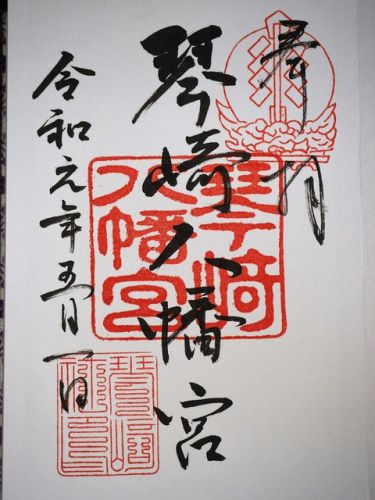 奉拝
琴崎八幡宮
令和元年五月一日
琴崎
八幡宮